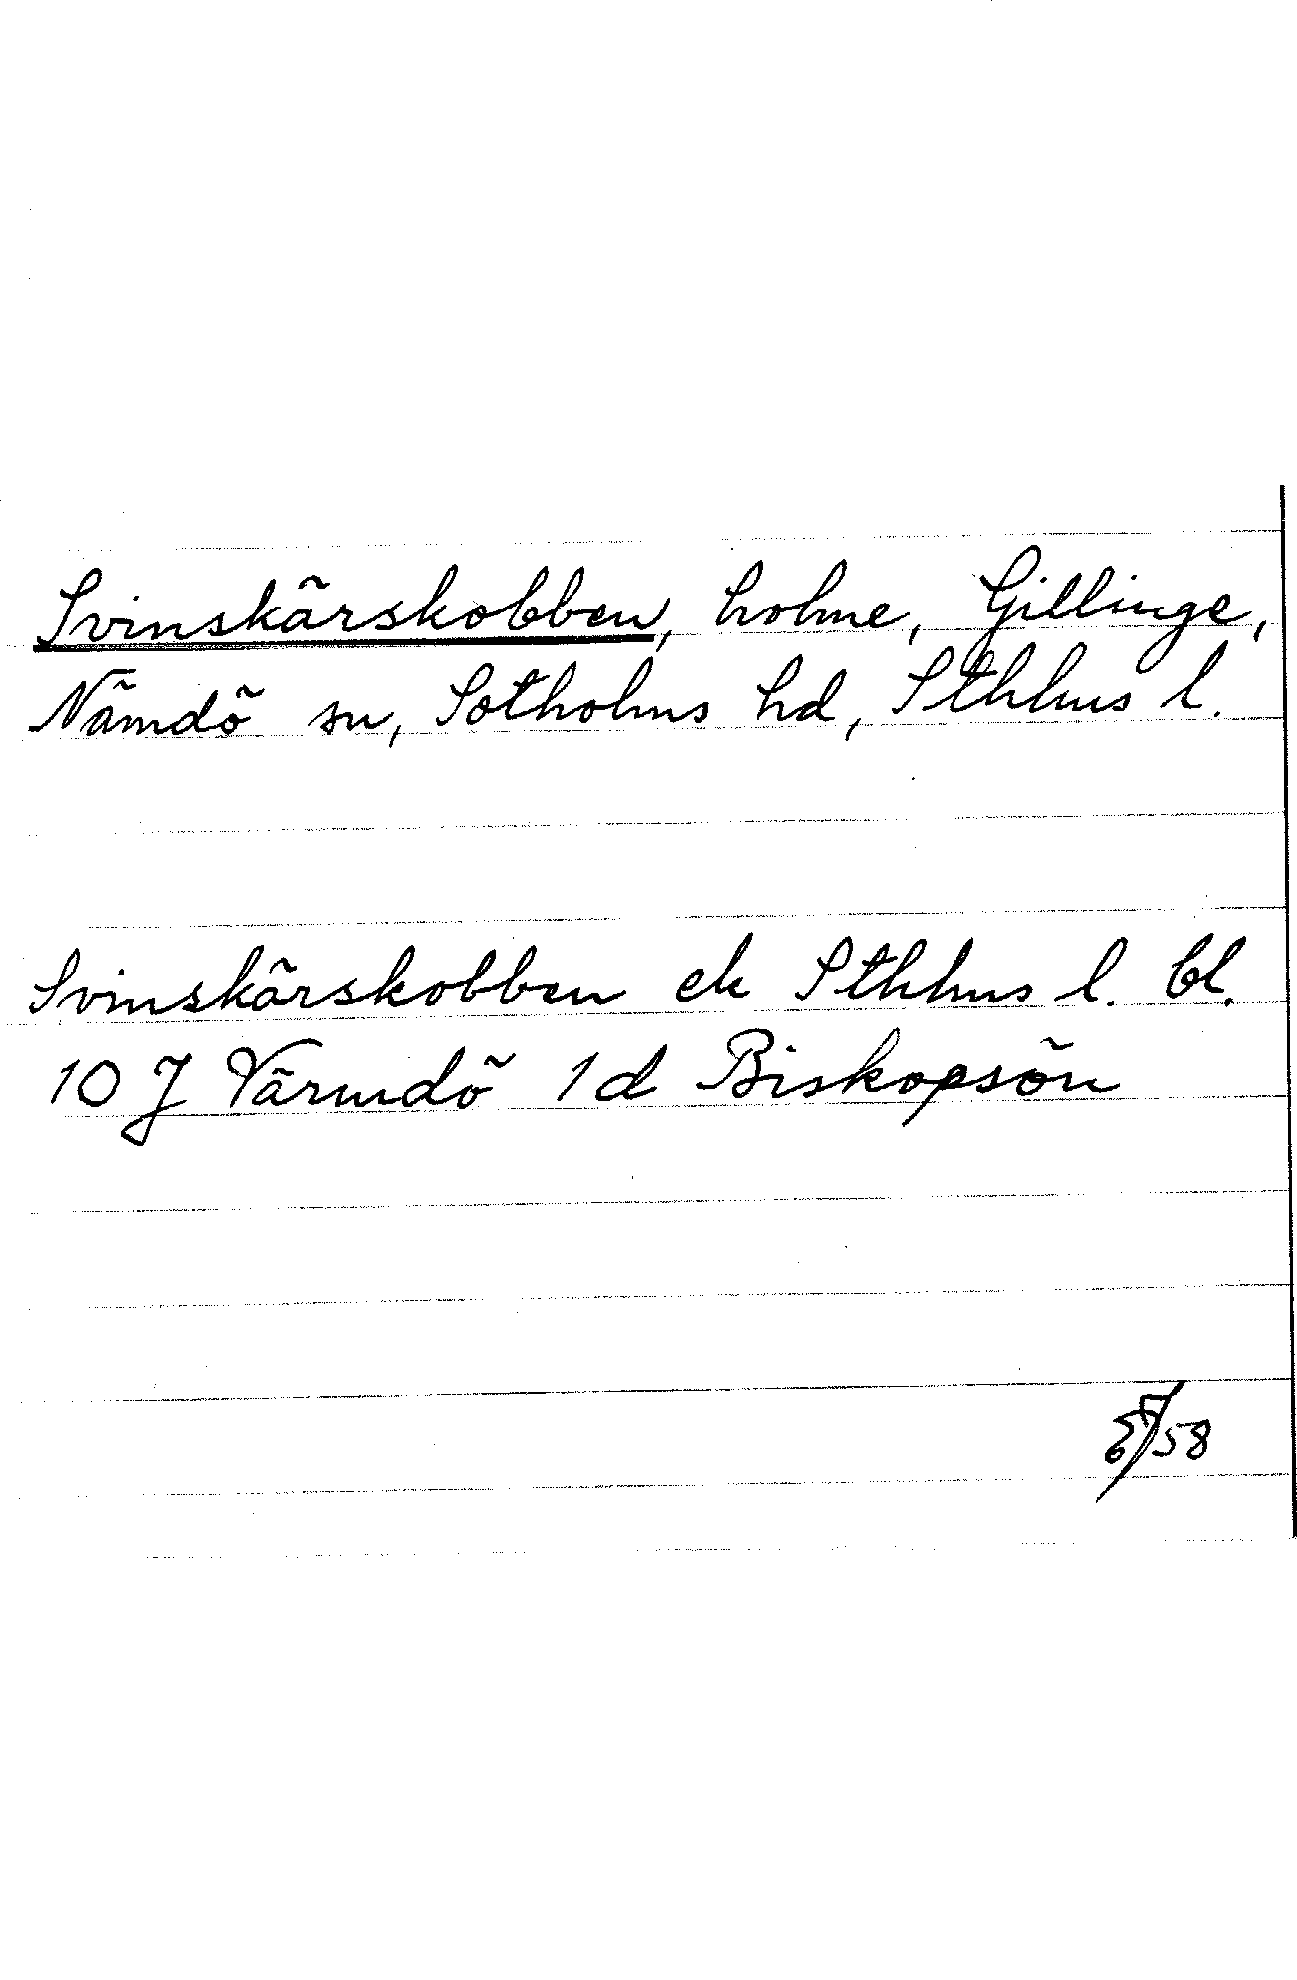 Svinskärskobben, holme, Gillinge,
Nämdö sn, Sotholms hd, Sthlms l.
Svinskärskobben ek Sthlms l. bl.
10 J Värmdö 1 d Biskopsön
58